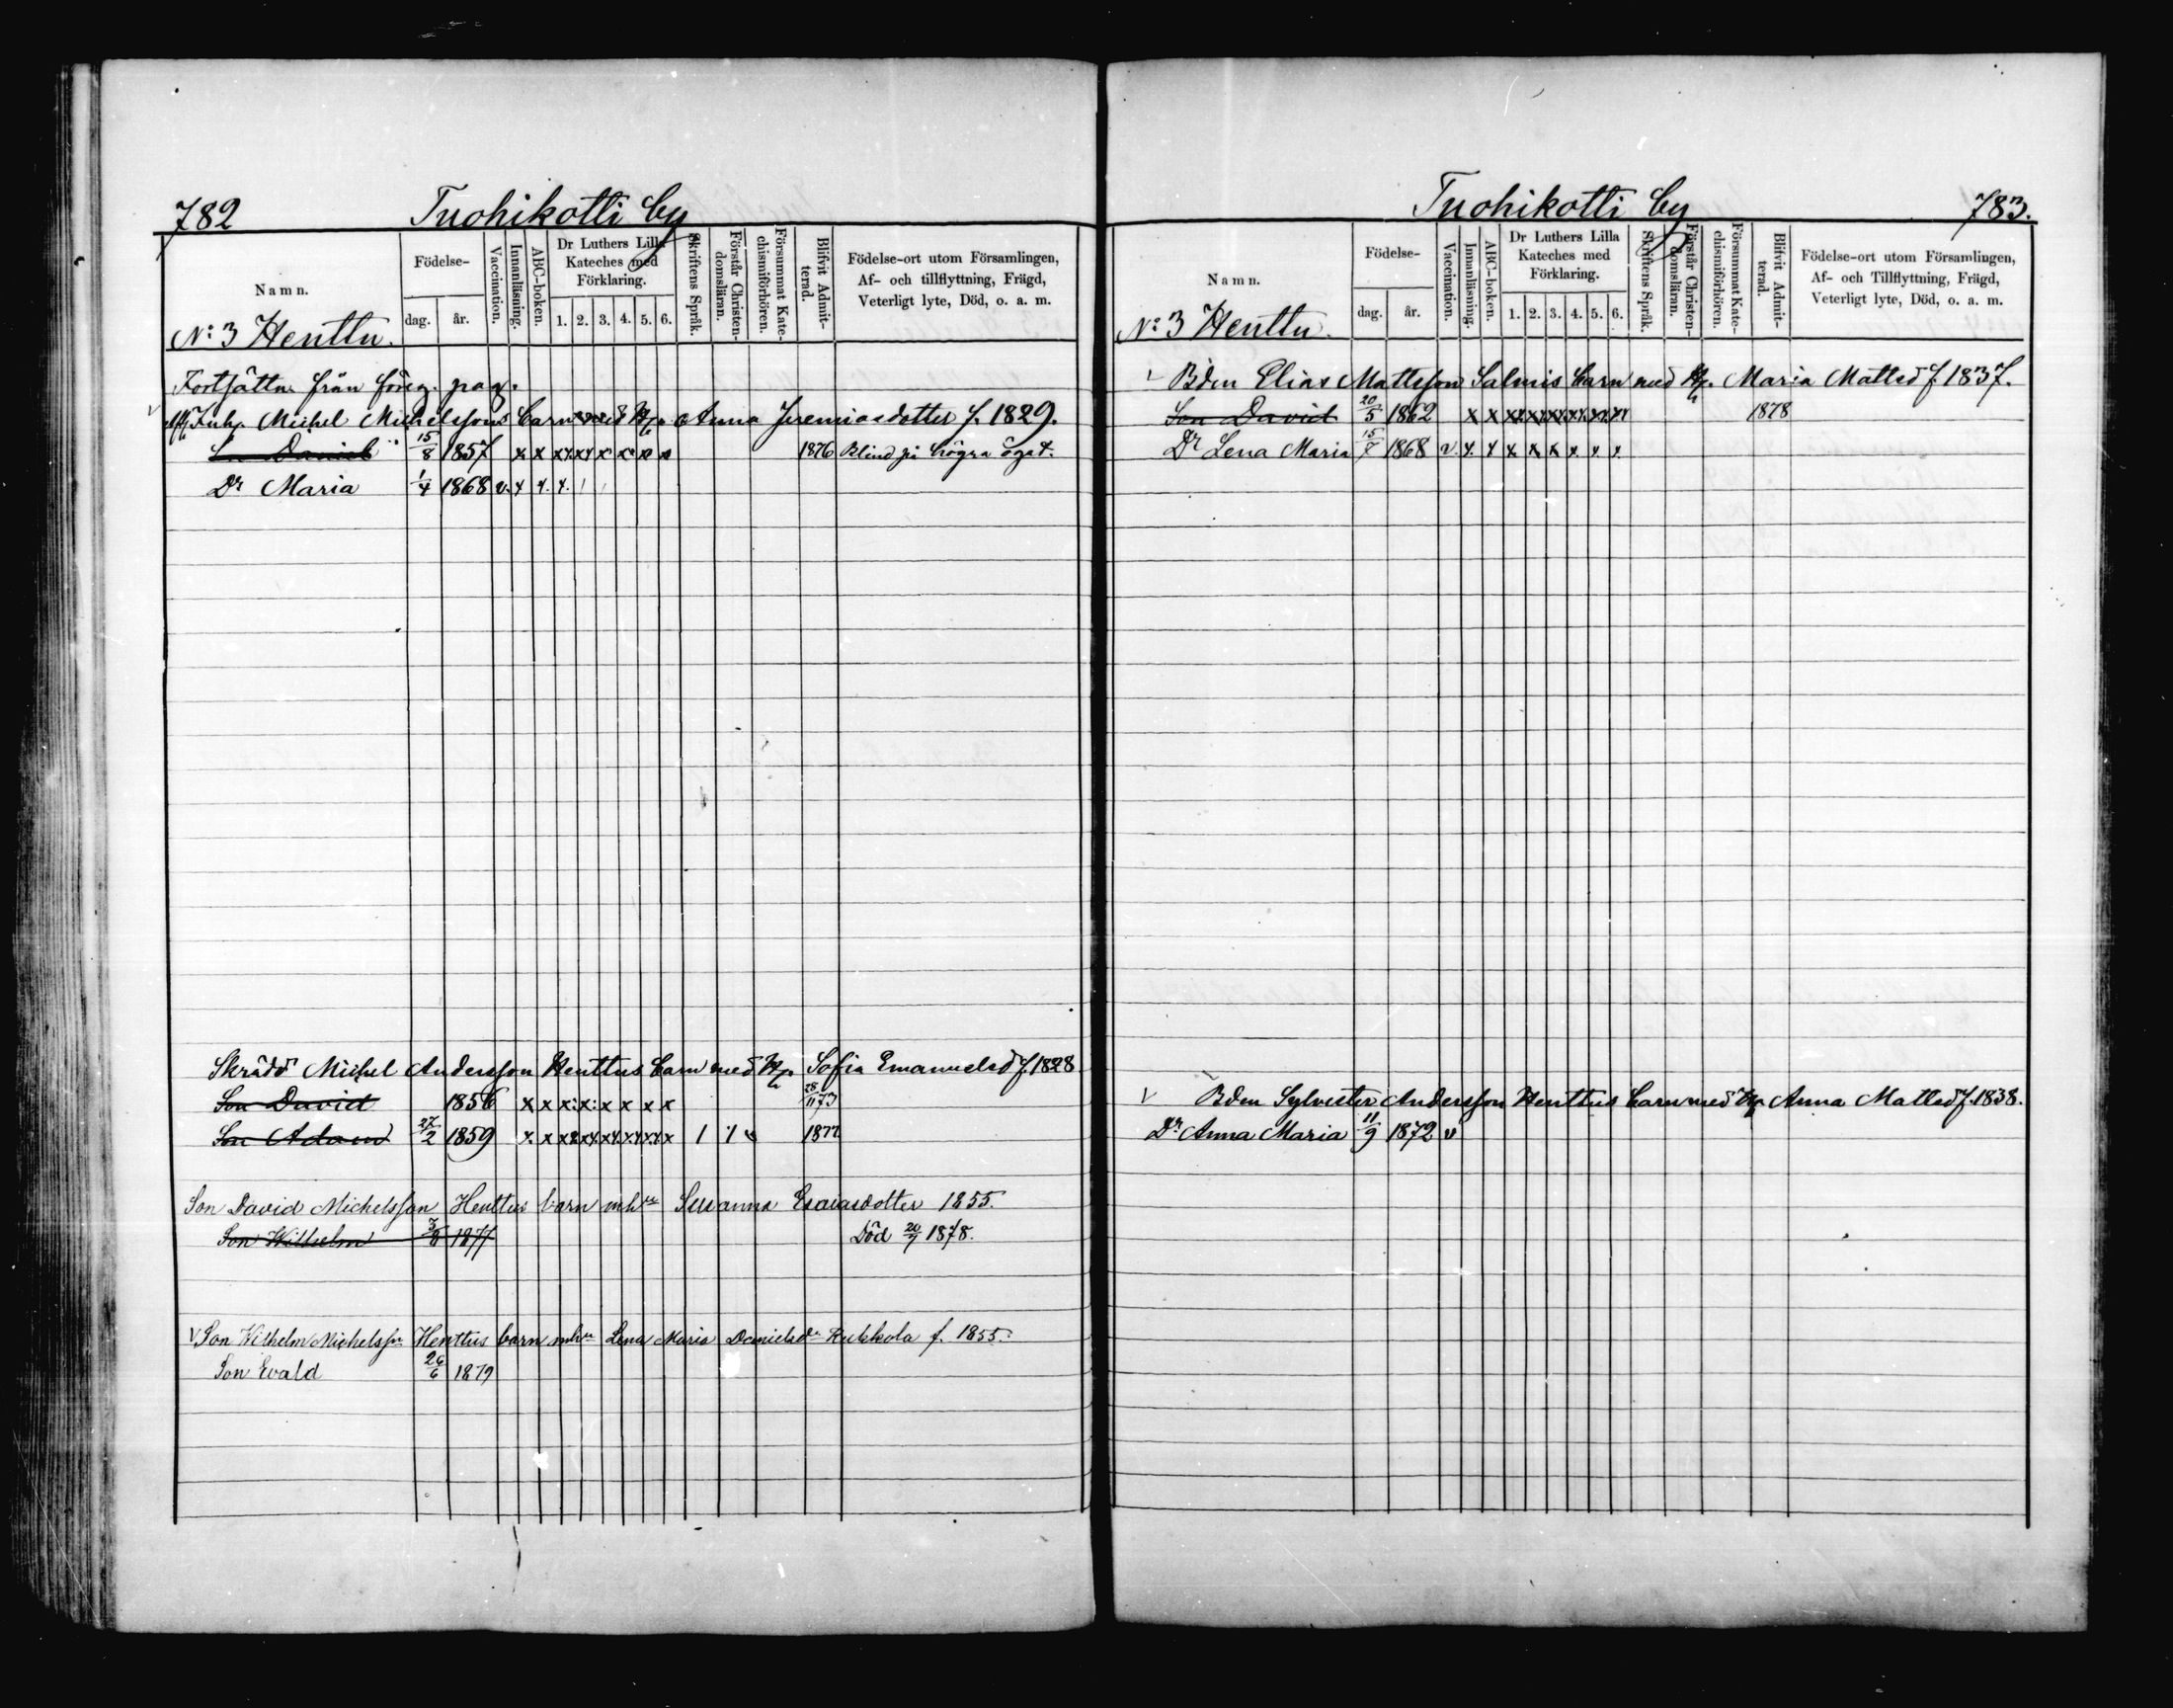 782 Tuohikotti by
Namn. Födelse- dag. år. Vaccination. Innanläsning. ABC-boken. Dr Luthers Lilla Kateches med Förklaring. 1. 2. 3. 4. 5. 6. Skriftens Språk. Förstår Christen-domsläran. Försummat Kate-chismiförhören. Blifvit Admit-terad. Födelse-ort utom Församlingen, Af- och tillflyttning, Frägd, Veterligt lyte, Död, o. a. m.
No: 3 Henttu.
Fortsättn. från föreg. pag.
Inh. Michel Michelssons barn med H. Anna Jeremiasdotter f. 1829.
Son Daniel 15/8 1857 x x x x x x x x 1876 Blind på högra ögat.
Dr Maria 1/4 1868 v. x x. x.
Skrädd Michel Andersson Henttus barn med H. Sofia Emanuelsd f. 1828
Son David 1856 x x x: x: x x x x 28/11 73
Son Adam 27/2 1859 x x x x x x x x 1 1 1877
Son David Michelsson Henttus barn m hu Susanna Esaiasdotter 1855.
Son Wilhelm 3/8 1877 Död 20/7 1878.
V Son Wilhelm Michelsson Henttus barn m hu Lena Maria Danielsdr Rukkola f. 1855.
Son Evald 26/6 1879
Tuohikotti by 783.
Namn. Födelse- dag. år. Vaccination. Innanläsning. ABC-boken. Dr Luthers Lilla Kateches med Förklaring. 1. 2. 3. 4. 5. 6. Skriftens Språk. Förstår Christen-domsläran. Försummat Kate-chismiförhören. Blifvit Admit-terad. Födelse-ort utom Församlingen, Af- och Tillflyttning, Frägd, Veterligt lyte, Död, o. a. m.
No: 3 Henttu.
Bden Elias Mattsson Salmis barn med H. Maria Mattsd f. 1837.
Son David 20/5 1862 x x x x x x x x 1878
Dr Lena Maria 15/7 1868 v. x. x x x x x. x. x.
V Bden Sylvester Andersson Henttus barn med H. Anna Mattsd f. 1838.
Dr Anna Maria 11/9 1872 v